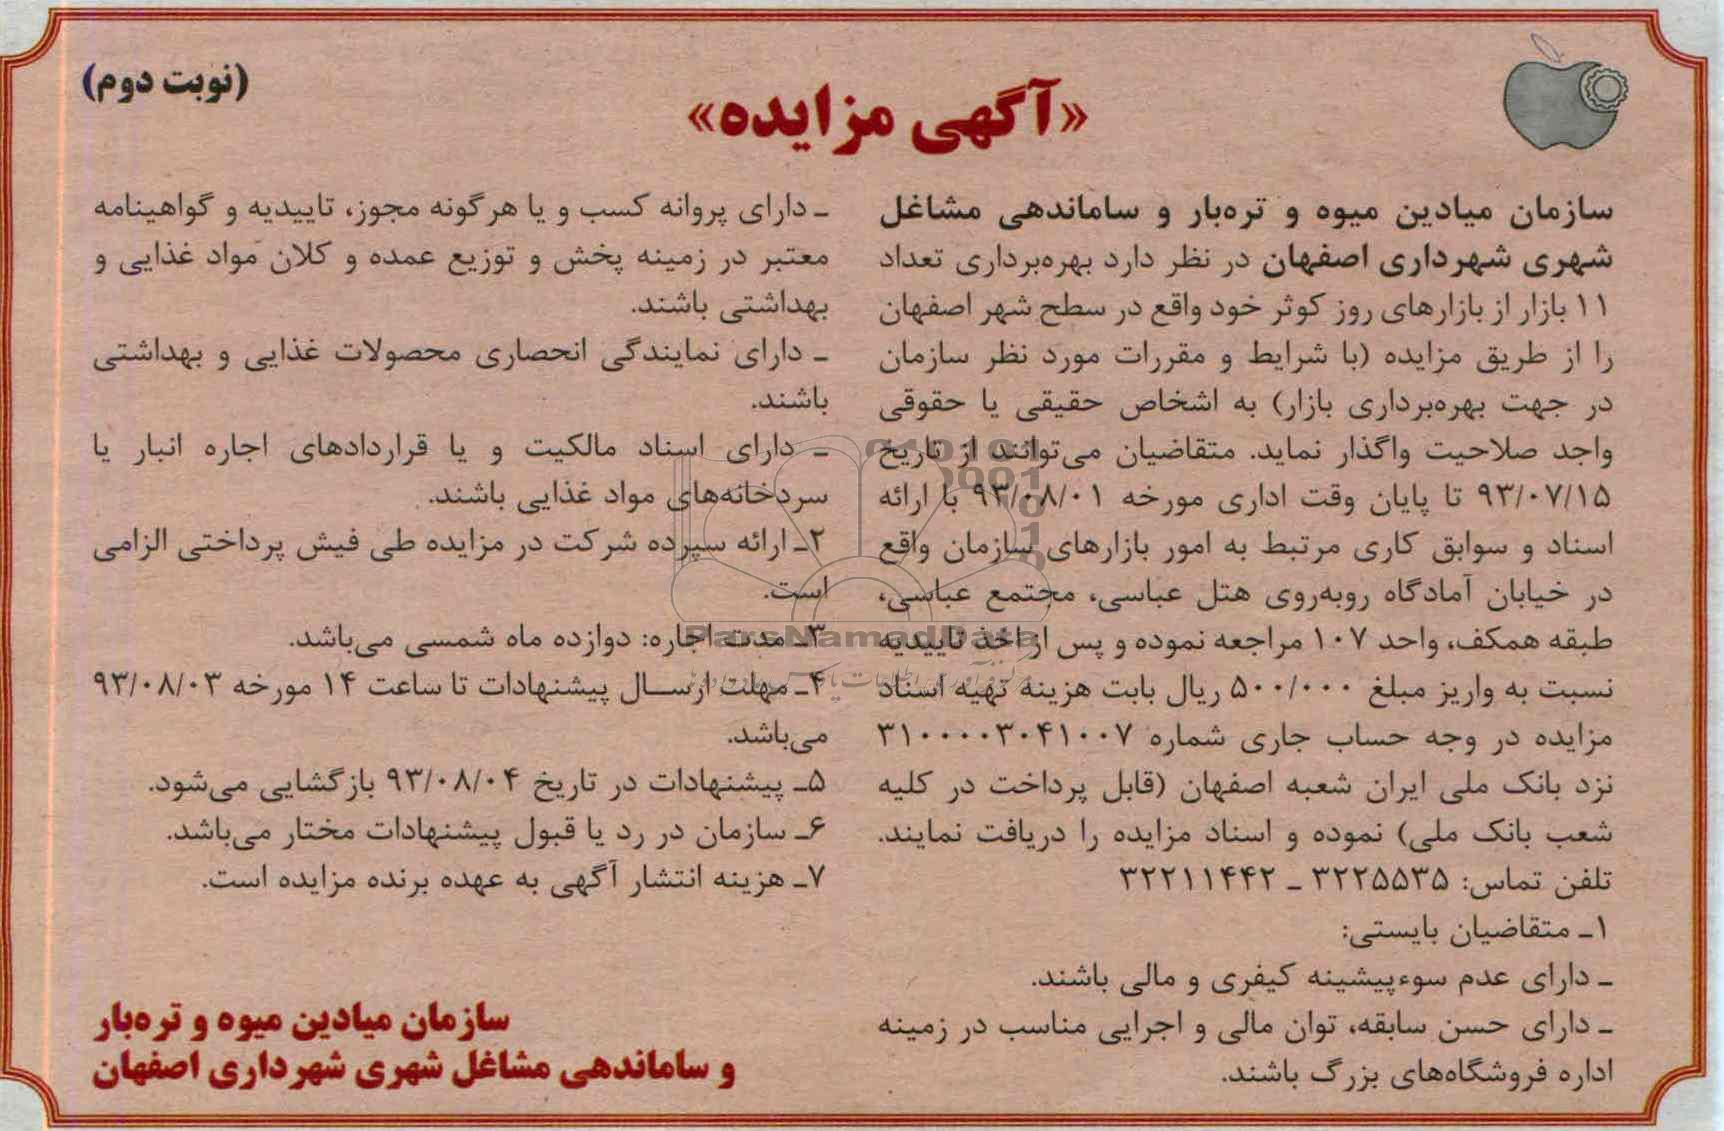 (نوبت دوم)
«آگهی مزایده»
سازمان میادین میوه و تره‌بار و ساماندهی مشاغل
شهری شهرداری اصفهان در نظر دارد بهره‌برداری تعداد
۱۱ بازار از بازارهای روز کوثر خود واقع در سطح شهر اصفهان
را از طریق مزایده (با شرایط و مقررات مورد نظر سازمان
در جهت بهره‌برداری بازار) به اشخاص حقیقی یا حقوقی
واجد صلاحیت واگذار نماید. متقاضیان می‌توانند از تاریخ
۹۳/۰۷/۱۵ تا پایان وقت اداری مورخه ۹۳/۰۸/۰۱ با ارائه
اسناد و سوابق کاری مرتبط به امور بازارهای سازمان واقع
در خیابان آمادگاه روبه‌روی هتل عباسی، مجتمع عباسی،
طبقه همکف، واحد ۱۰۷ مراجعه نموده و پس از اخذ تاییدیه
نسبت به واریز مبلغ ۵۰۰/۰۰۰ ریال بابت هزینه تهیه اسناد
مزایده در وجه حساب جاری شماره ۳۱۰۰۰۰۳۰۴۱۰۰۷
نزد بانک ملی ایران شعبه اصفهان (قابل پرداخت در کلیه
شعب بانک ملی) نموده و اسناد مزایده را دریافت نمایند.
تلفن تماس: ۳۲۲۵۵۳۵ ـ ۳۲۲۱۱۴۴۲
۱ـ متقاضیان بایستی:
ـ دارای عدم سوءپیشینه کیفری و مالی باشند.
ـ دارای حسن سابقه، توان مالی و اجرایی مناسب در زمینه
اداره فروشگاه‌های بزرگ باشند.
ـ دارای پروانه کسب و یا هرگونه مجوز، تاییدیه و گواهینامه
معتبر در زمینه پخش و توزیع عمده و کلان مواد غذایی و
بهداشتی باشند.
ـ دارای نمایندگی انحصاری محصولات غذایی و بهداشتی
باشند.
ـ دارای اسناد مالکیت و یا قراردادهای اجاره انبار یا
سردخانه‌های مواد غذایی باشند.
۲ـ ارائه سپرده شرکت در مزایده طی فیش پرداختی الزامی
است.
۳ـ مدت اجاره: دوازده ماه شمسی می‌باشد.
۴ـ مهلت ارسال پیشنهادات تا ساعت ۱۴ مورخه ۹۳/۰۸/۰۳
می‌باشد.
۵ـ پیشنهادات در تاریخ ۹۳/۰۸/۰۴ بازگشایی می‌شود.
۶ـ سازمان در رد یا قبول پیشنهادات مختار می‌باشد.
۷ـ هزینه انتشار آگهی به عهده برنده مزایده است.
سازمان میادین میوه و تره‌بار
و ساماندهی مشاغل شهری شهرداری اصفهان
ParsNamadData